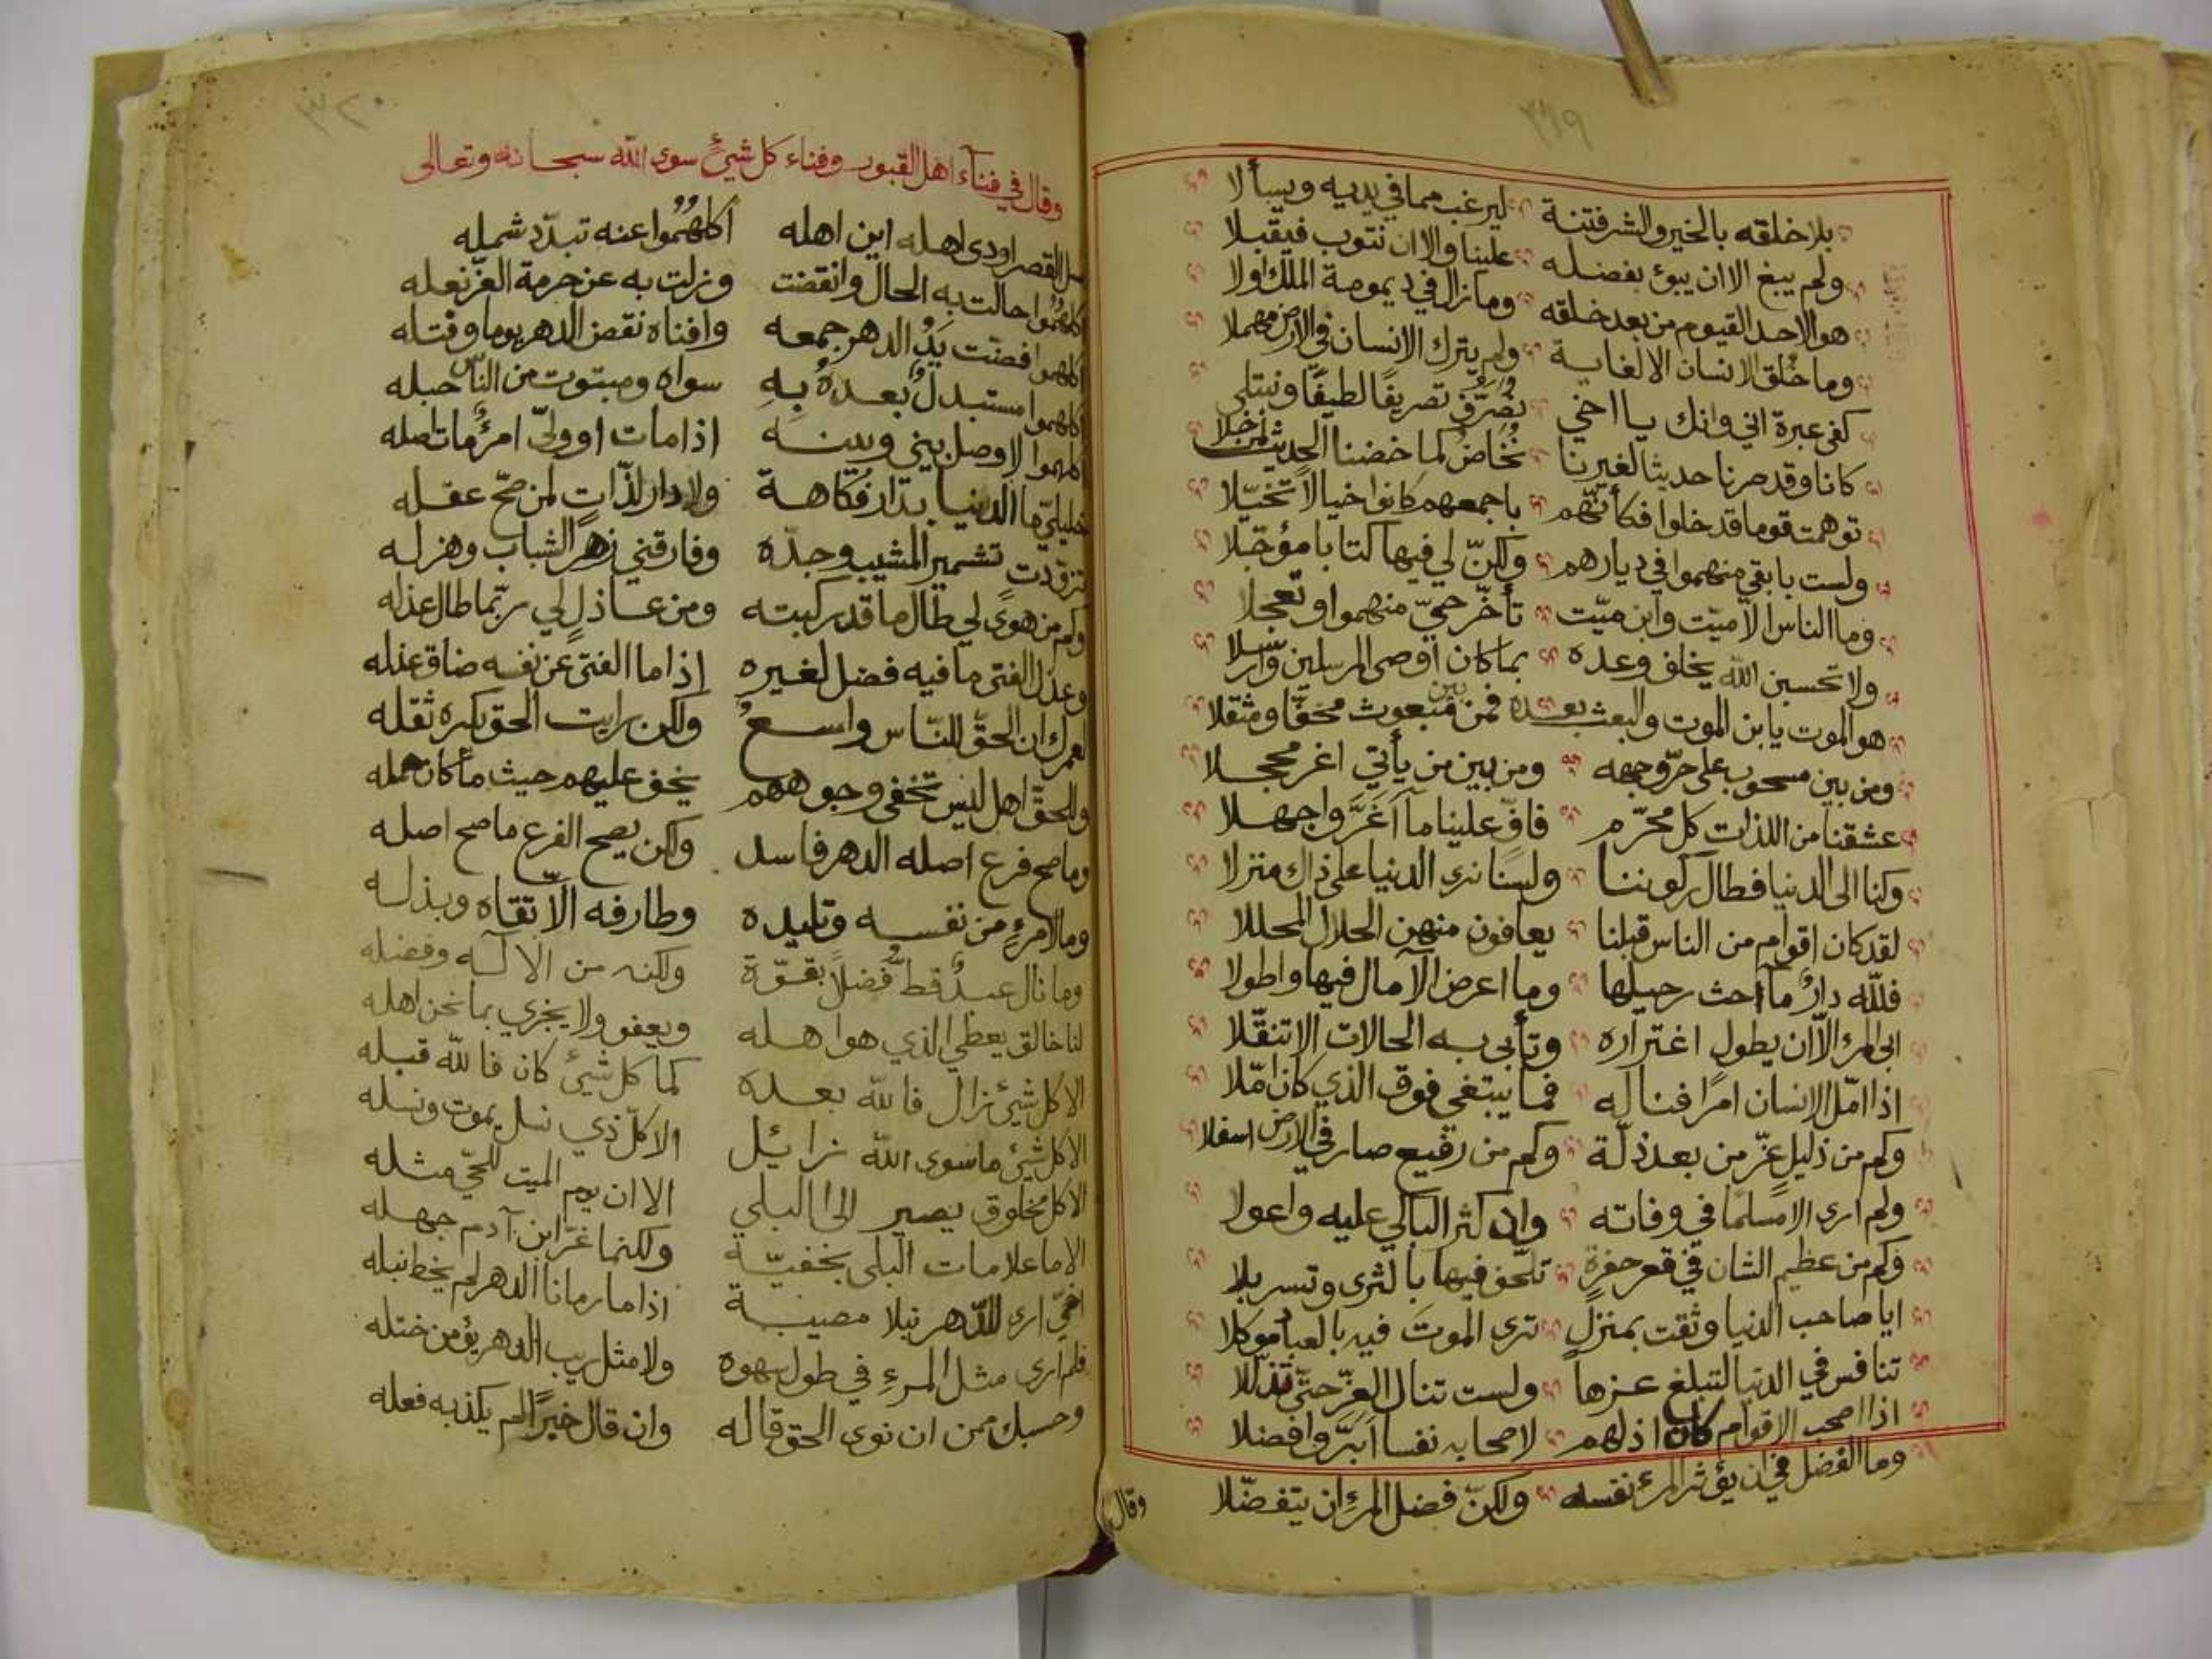 ٣١٩
بلا خلقه بالخير والشر فتنة ليرغب مما في يديه ويسألا
ولم يبغ الا ان يبوئ بفضله علينا والا ان نتوب فيقبلا
هو الاحد القيوم من بعد خلقه وما زال في ديمومة الملك اولا
وما خلق الانسان الا لغاية ولم يترك الانسان في الارض مهملا
كفى عبرة اني وانك يا اخي نُصَرَّفُ تصريفًا لطيفًا ونبتلى
كانا وقد صرنا حديثا لغيرنا نُخَاضُ كما خضنا الحديث لمن خلا
توهمت قوما قد خلوا فكأنّهم باجمعهم كانوا خيالا تخيّلا
ولست بابقى منهموا في ديارهم ولكنّ لي فيها كتابا مؤجّلا
وما الناس الا ميّت وابن ميّت تأخّر حيّ منهموا او تعجلا
ولا تحسبن الله يخلف وعده بما كان اوصى المرسلين وارسلا
هو الموت يا ابن الموت والبعث بعده فمن بين مبعوث مخفّا ومثقلا
ومن بين مسحوب على حرّ وجهه ومن بين من يأتي اغر محجلا
عشقنا من اللذات كل محرّم فافّ علينا ما أغَرَّ واجهلا
وكنا الى الدنيا فطال ركوننا ولسنا نرى الدنيا على ذاك منزلا
لقد كان اقوام من الناس قبلنا يعافون منهن الحلال المحللا
فللّه دارٌ ما أحث رحيلها وما اعرض الآمال فيها واطولا
ابى المرء الّا ان يطول اغتراره وتأبى به الحالات الا تنقّلا
اذا امّل الانسان امرًا فناله فما يبتغي فوق الذي كان امّلا
وكم من ذليل عزّ من بعد ذلّة وكم من رفيع صار في الارض اسفلا
ولم ارى الا مسلمًا في وفاته وان كثر الباكي عليه واعولا
وكم من عظيم الشان في قعر حفرة تلحّف فيها بالثرى وتسربلا
ايا صاحب الدنيا وثقت بمنزل ترى الموتَ فيه بالعباد موكلا
تنافس في الدنيا لتبلغ عزها ولست تنال العزّ حتّى تذلّلا
اذا اصحب الاقوام كان اذلهم لاصحابه نفسا أبَرَّ وافضلا
وما الفضل في ان يؤثر المرء نفسه ولكنّ فضل المرءِ ان يتفضّلا
وقال
٣٢٠
وقال في فنآء اهل القبور وفناء كل شيئٍ سوى الله سبحانه وتعالى
سل القصر اودى اهله اين اهله اكلهُمُوا عنه تبدّد شمله
اكلهُمُوا حالت به الحال وانقضت وزلت به عن حرمة العزّ نعله
اكلهموا افضت يَدُ الدهر جمعه وافناه نقض الدهر يوما وفتله
اكلهموا مستبدلٌ بعدهُ بهِ سواه ومبتوت من الناس حبله
اكلهموا لا وصل بيني وبينه اذا مات او ولّى امرؤٌ مات اصله
خليليّ ما الدنيا بدار فُكاهة ولا دار لذّاتٍ لمن صحّ عقله
تزوّدت تشمير المشيب وجدّه وفارقني زهر الشباب وهزله
وكم من هوىً لي طال ما قد ركبته ومن عاذلٍ لي ربّما طال عذله
وعذل الفتى ما فيه فضل لغيره اذا ما الفتى عن نفسه ضاق عذله
لعمرك ان الحقّ للنّاس واسعُ ولكن رايت الحق يكره ثقله
وللحقّ اهل ليس تخفى وجوههم يخف عليهم حيث ما كان حمله
وما صح فرع اصله الدهر فاسد ولكن يصح الفرع ما صح اصله
وما لامرءٍ من نفسه وتليده وطارفه الّا تقاه وبذله
وما نال عبدٌ قط فضلاً بقوّة ولكنه من الاله وفضله
لنا خالق يعطي الذي هو اهله ويعفو ولا يجزي بما نحن اهله
الا كل شيئ زال فالله بعده كما كل شيئ كان فالله قبله
الا كل شيئ ما سوى الله زائل الا كلّ ذي نسل يموت ونسله
الا كل مخلوق يصير الى البلى الا ان يوم الميت للحيّ مثله
الا ما علامات البلى بخفيّة ولكنما غرّ ابن آدم جهله
اخيّ ارى للدّهر نبلا مصيبة اذا ما رمانا الدهر لم يخط نبله
فلم ارى مثل المرءِ في طول سهوه ولا مثل ريب الدهر يؤمن ختله
وحسبك ممن ان نوى الحق قاله وان قال خيرًا لم يكذبه فعله